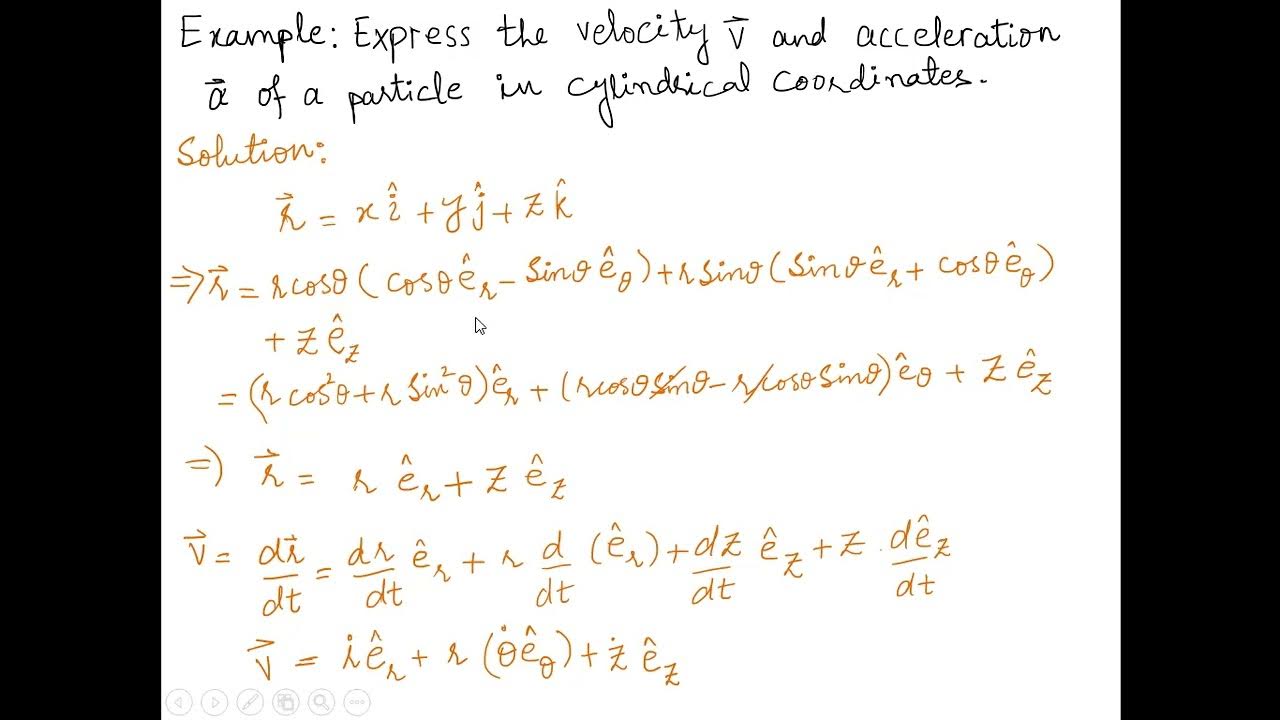 Example: Express the velocity v⃗ and acceleration
a⃗ of a particle in cylindrical coordinates.
Solution:
r⃗ = x î + y ĵ + z k̂
⇒ r⃗ = r cosθ ( cosθ ê_r - sinθ ê_θ ) + r sinθ ( sinθ ê_r + cosθ ê_θ )
+ z ê_z
= (r cos²θ + r sin²θ) ê_r + (r cosθ sinθ - r cosθ sinθ) ê_θ + z ê_z
⇒ r⃗ = r ê_r + z ê_z
v⃗ = dr⃗/dt = dr/dt ê_r + r d/dt (ê_r) + dz/dt ê_z + z . dê_z/dt
v⃗ = ṙ ê_r + r (θ̇ ê_θ) + ż ê_z